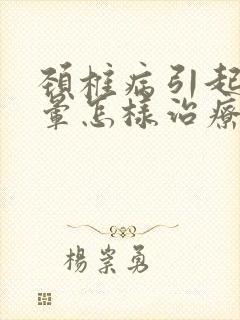 頚椎病引起
暈怎樣治療
楊崇勇